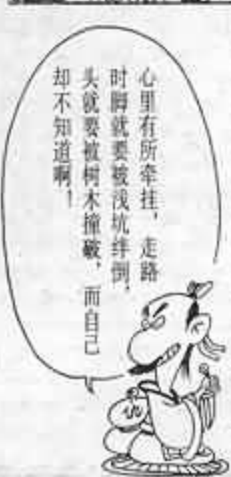 心里有所牵挂，走路
时脚就要被浅坑绊倒，
头就要被树木撞破，而自己
却不知道啊！